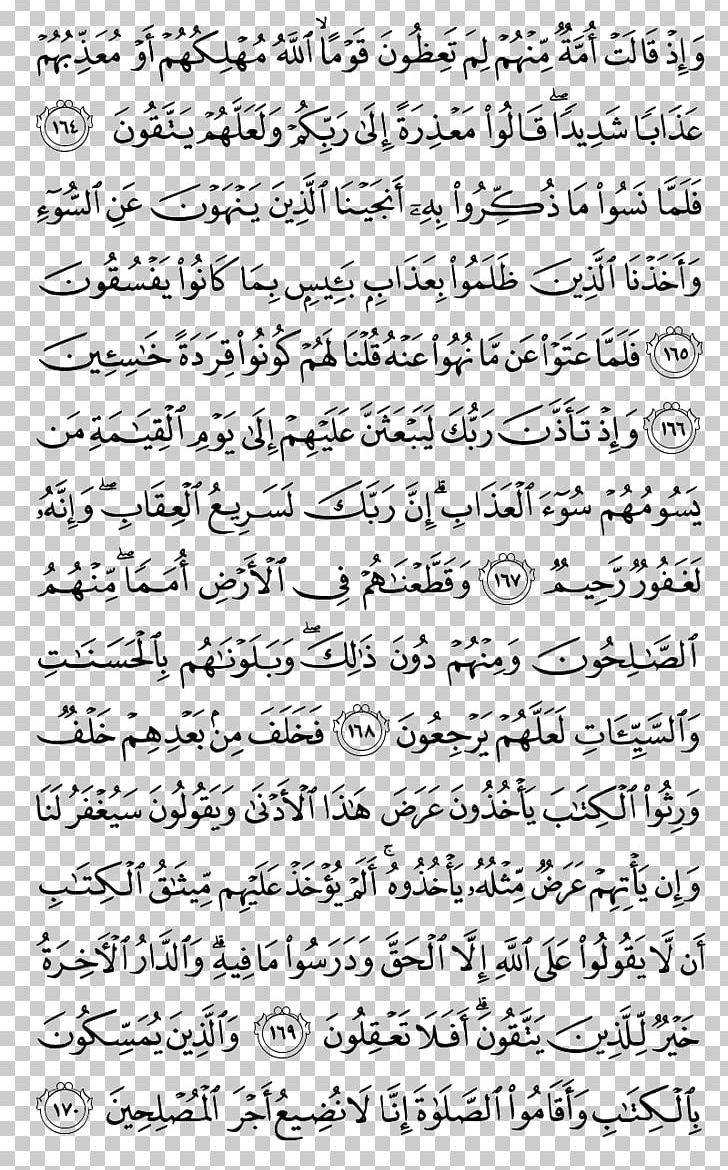 وَإِذۡ قَالَتۡ أُمَّةٞ مِّنۡهُمۡ لِمَ تَعِظُونَ قَوۡمًا ٱللَّهُ مُهۡلِكُهُمۡ أَوۡ مُعَذِّبُهُمۡ
عَذَابٗا شَدِيدٗاۖ قَالُواْ مَعۡذِرَةً إِلَىٰ رَبِّكُمۡ وَلَعَلَّهُمۡ يَتَّقُونَ ١٦٤
فَلَمَّا نَسُواْ مَا ذُكِّرُواْ بِهِۦٓ أَنجَيۡنَا ٱلَّذِينَ يَنۡهَوۡنَ عَنِ ٱلسُّوٓءِ
وَأَخَذۡنَا ٱلَّذِينَ ظَلَمُواْ بِعَذَابِۭ بَـِٔيسِۭ بِمَا كَانُواْ يَفۡسُقُونَ
١٦٥ فَلَمَّا عَتَوۡاْ عَن مَّا نُهُواْ عَنۡهُ قُلۡنَا لَهُمۡ كُونُواْ قِرَدَةً خَٰسِـِٔينَ
١٦٦ وَإِذۡ تَأَذَّنَ رَبُّكَ لَيَبۡعَثَنَّ عَلَيۡهِمۡ إِلَىٰ يَوۡمِ ٱلۡقِيَٰمَةِ مَن
يَسُومُهُمۡ سُوٓءَ ٱلۡعَذَابِۗ إِنَّ رَبَّكَ لَسَرِيعُ ٱلۡعِقَابِ وَإِنَّهُۥ
لَغَفُورٞ رَّحِيمٞ ١٦٧ وَقَطَّعۡنَٰهُمۡ فِي ٱلۡأَرۡضِ أُمَمٗاۖ مِّنۡهُمُ
ٱلصَّٰلِحُونَ وَمِنۡهُمۡ دُونَ ذَٰلِكَۖ وَبَلَوۡنَٰهُم بِٱلۡحَسَنَٰتِ
وَٱلسَّيِّـَٔاتِ لَعَلَّهُمۡ يَرۡجِعُونَ ١٦٨ فَخَلَفَ مِنۢ بَعۡدِهِمۡ خَلۡفٞ
وَرِثُواْ ٱلۡكِتَٰبَ يَأۡخُذُونَ عَرَضَ هَٰذَا ٱلۡأَدۡنَىٰ وَيَقُولُونَ سَيُغۡفَرُ لَنَا
وَإِن يَأۡتِهِمۡ عَرَضٞ مِّثۡلُهُۥ يَأۡخُذُوهُۚ أَلَمۡ يُؤۡخَذۡ عَلَيۡهِم مِّيثَٰقُ ٱلۡكِتَٰبِ
أَن لَّا يَقُولُواْ عَلَى ٱللَّهِ إِلَّا ٱلۡحَقَّ وَدَرَسُواْ مَا فِيهِۗ وَٱلدَّارُ ٱلۡأٓخِرَةُ
خَيۡرٞ لِّلَّذِينَ يَتَّقُونَۗ أَفَلَا تَعۡقِلُونَ ١٦٩ وَٱلَّذِينَ يُمَسِّكُونَ
بِٱلۡكِتَٰبِ وَأَقَامُواْ ٱلصَّلَوٰةَ إِنَّا لَا نُضِيعُ أَجۡرَ ٱلۡمُصۡلِحِينَ ١٧٠